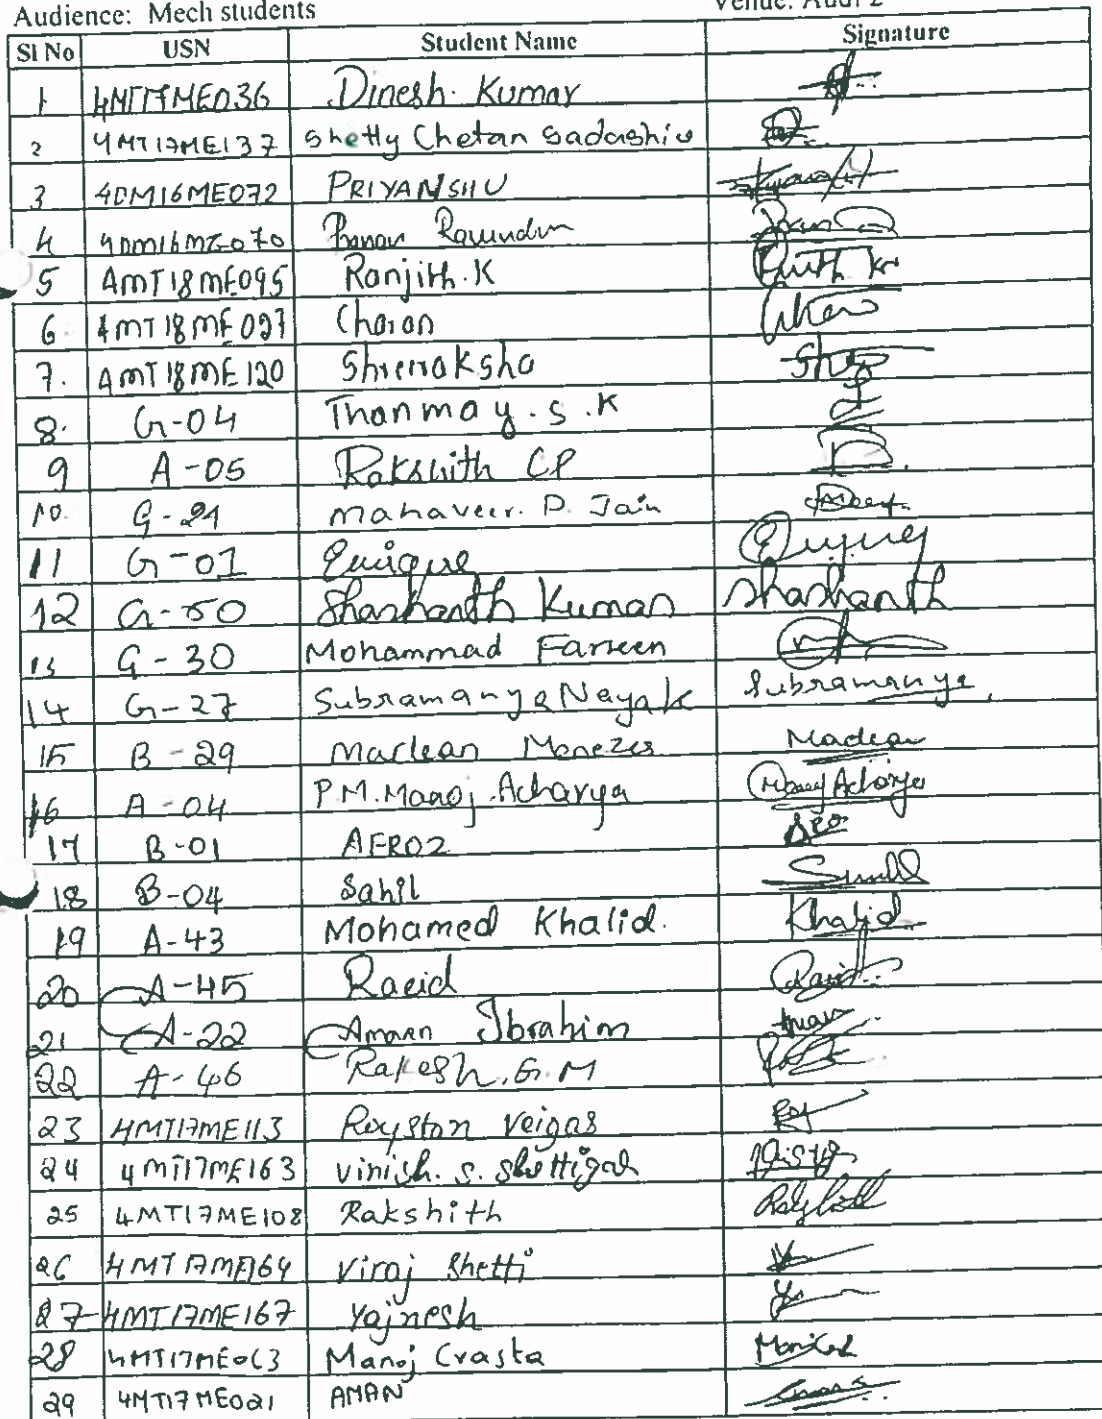 Audience: Mech students Venue: Audi 2
Sl No USN Student Name Signature
1 4MT17ME036 Dinesh. Kumar
2 4MT17ME137 Shetty Chetan Sadashiv
3 4DM16ME072 PRIYANSHU
4 4DM16ME070
5 4MT18ME095 Ranjith.K
6 4MT18ME027 Charan
7. 4MT18ME120 Shreeraksha
8. G-04 Thanmay.S.K
9 A-05 Rakshith CP
10. G-21 Mahaveer. D. Jain
11 G-01
12 G-50 Shashanth Kumar Shashanth
13 G-30 Mohammad Farseen
14 G-27 Subramanya Nayak Subramanya
15 B-29 Maclean Menezes Maclean
16 A-04 P.M.Manoj.Acharya Manoj Acharya
17 B-01 AFROZ
18 B-04 Sahil
19 A-43 Mohamed Khalid. Khalid
20 A-45 Raeid
21 A-22 Amaan Ibrahim
22 A-46 Rakesh.G.M
23 4MT17ME113 Royston Veigas
24 4MT17ME163 Vinish. S. Shettigar
25 4MT17ME108 Rakshith
26 4MT17ME164 Viraj Shetti
27 4MT17ME167 Yajnesh
28 4MT17ME063 Manoj Crasta
29 4MT17ME021 AMAN